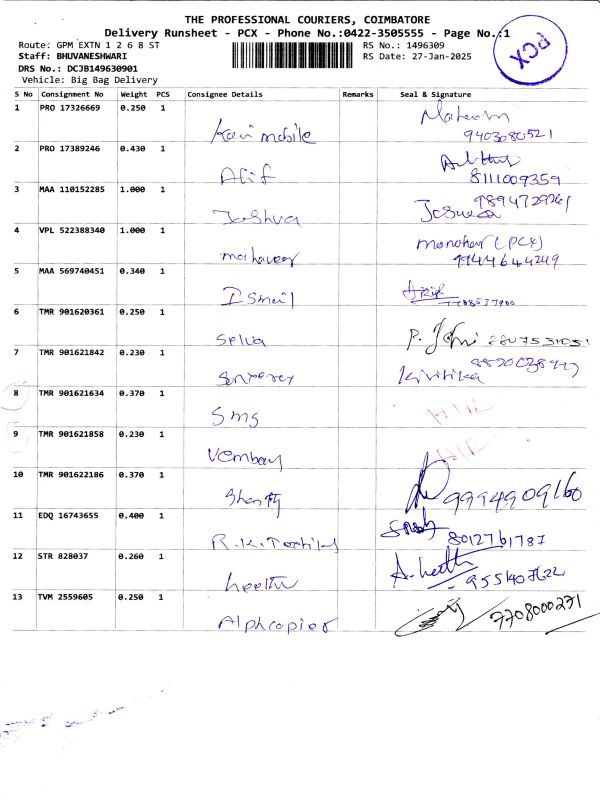 THE PROFESSIONAL COURIERS, COIMBATORE
Delivery Runsheet - PCX - Phone No.:0422-3505555 - Page No.:1
Route: GPM EXTN 1 2 6 8 ST RS No.: 1496309
Staff: BHUVANESHWARI RS Date: 27-Jan-2025
DRS No.: DCJB149630901
Vehicle: Big Bag Delivery
PCX
S No Consignment No Weight PCS Consignee Details Remarks Seal & Signature
1 PRO 17326669 0.250 1
Kavi mobile 9403080521
2 PRO 17389246 0.430 1
Alif 8111009359
3 MAA 110152285 1.000 1
Joshua
4 VPL 522388340 1.000 1 manohar (PCX)
mahaveer 9944644249
5 MAA 569740451 0.340 1
Ismail
6 TMR 901620361 0.250 1
Selva
7 TMR 901621842 0.230 1
Kiritika
8 TMR 901621634 0.370 1
SMS
9 TMR 901621858 0.230 1
Vembay
10 TMR 901622186 0.370 1
9994909160
11 EDQ 16743655 0.400 1
R.K. 8012761787
12 STR 828037 0.260 1
13 TVM 2559605 0.250 1
Alphcopier 7708000271